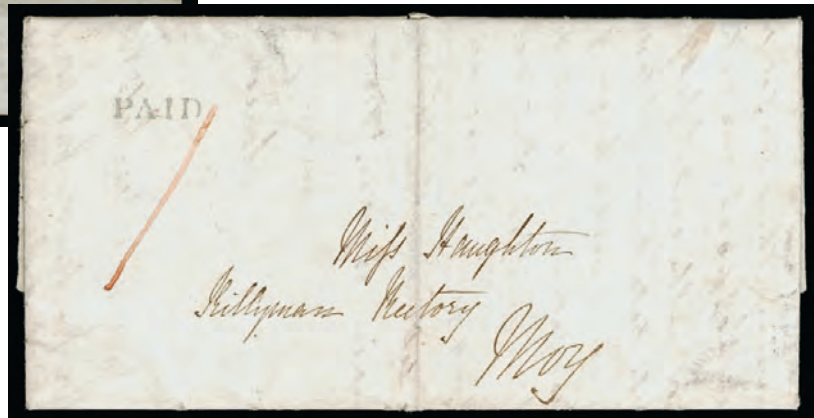 PAID
Miss Haughton
Killyman Rectory
Moy